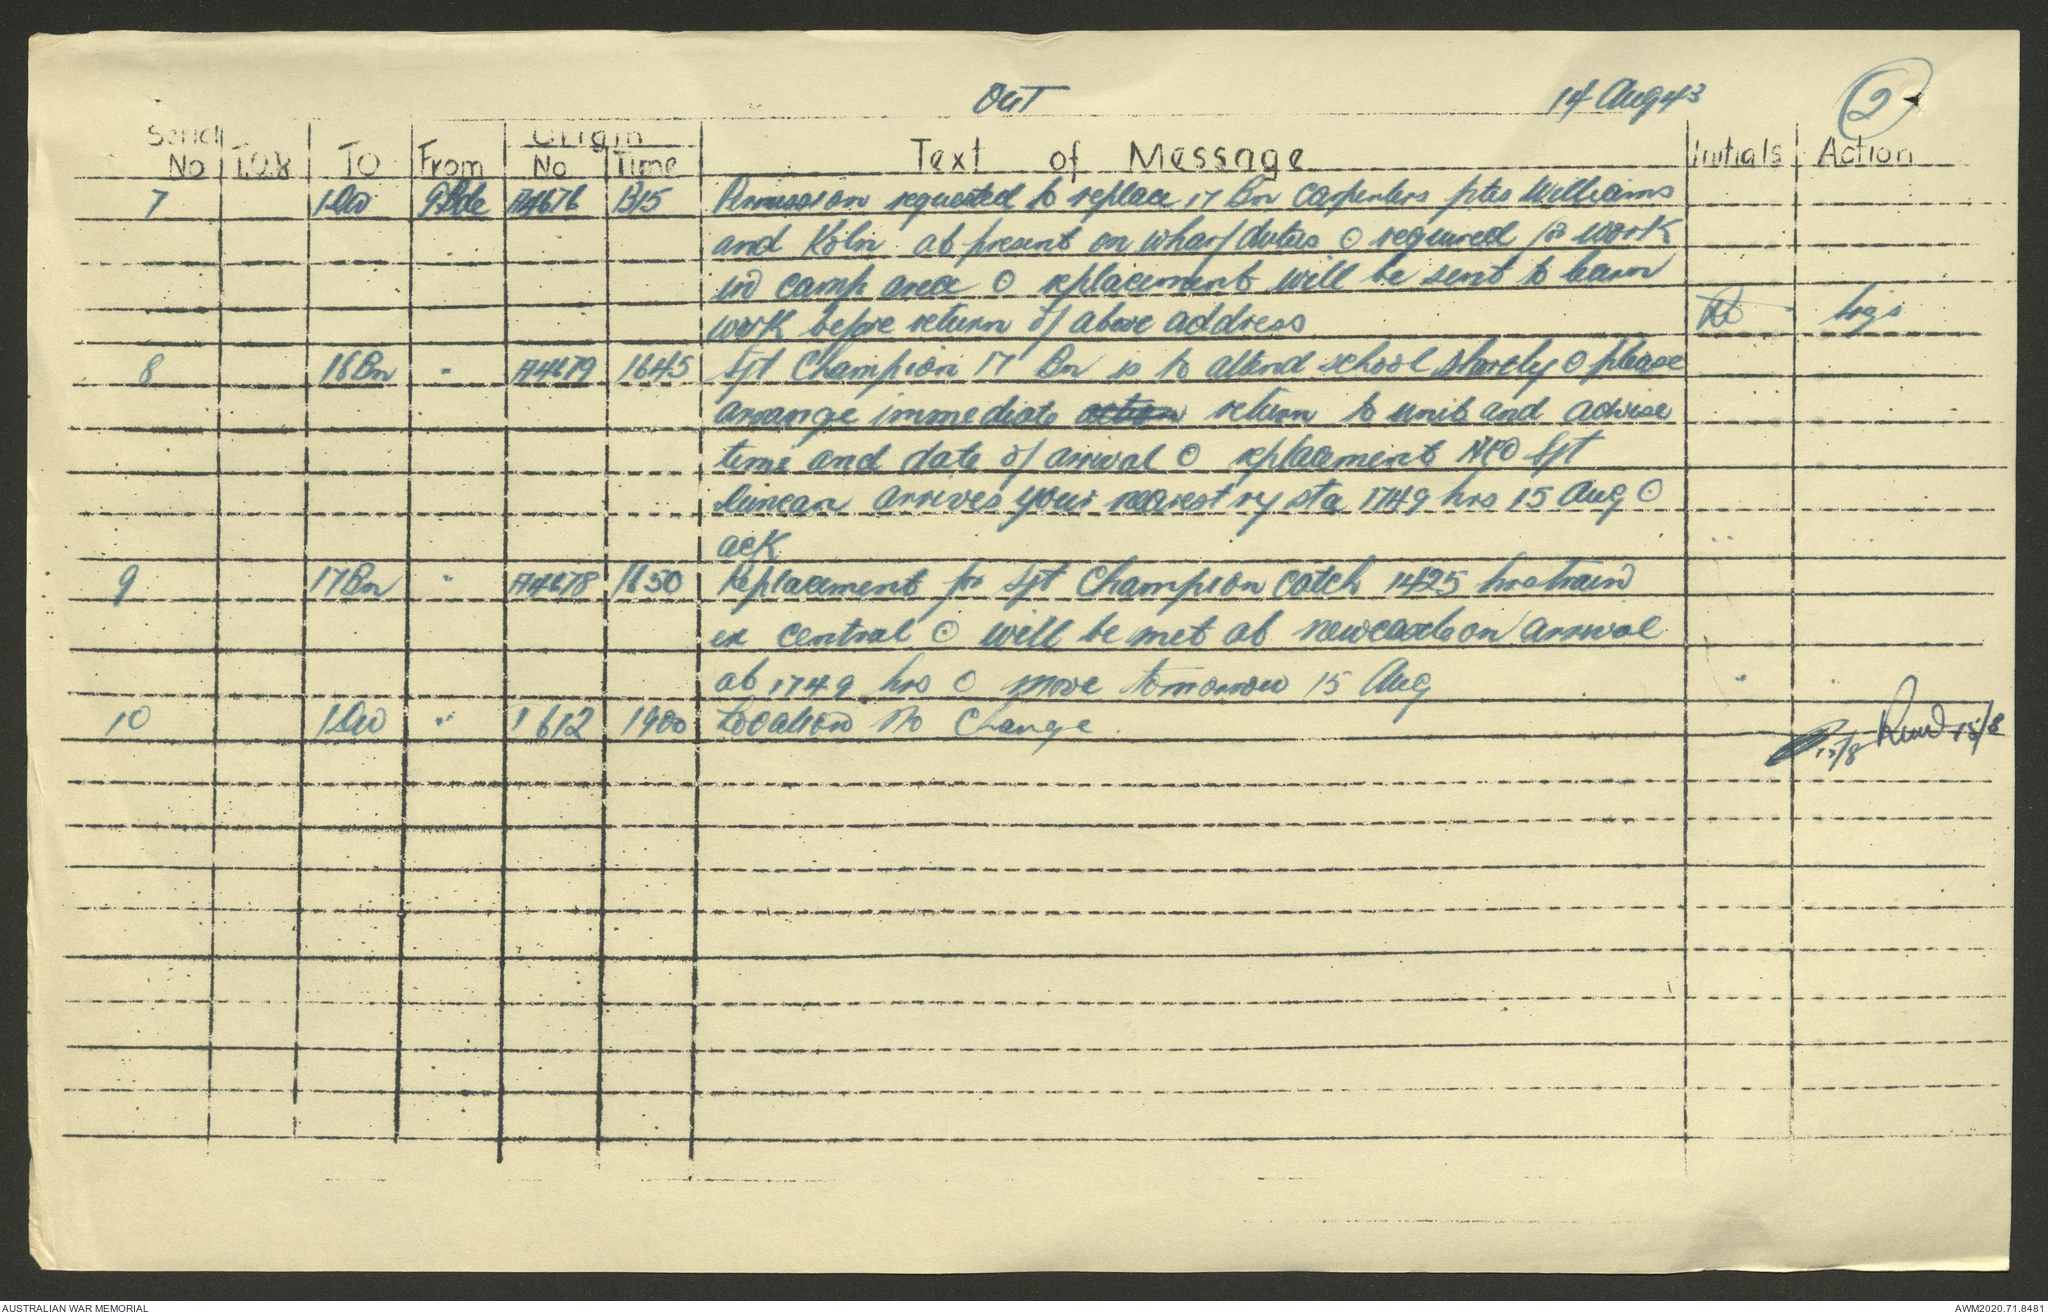 OUT 14 Aug 43 2
Serial Origin
No T.O.R TO From No Time Text of Message Initials Action
7 1 Div 9 Bde A4676 1315 Permission requested to replace 17 Bn carpenters ptes Williams
and at present on wharf duties ⊙ required for work
in camp area ⊙ replacement will be sent to learn
work before return of above address
8 16 Bn " A4679 1645 Sjt Champion 17 Bn is to attend school shortly ⊙ please
arrange immediate action return to unit and advise
time and date of arrival ⊙ replacement NCO Sjt
Duncan arrives your nearest ry sta 1749 hrs 15 Aug ⊙
ack " "
9 17 Bn " A4678 1650 Replacement for Sjt Champion catch 1425 hrs train
ex central ⊙ will be met at newcastle on arrival
at 1749 hrs ⊙ move tomorrow 15 Aug " "
10 1 Div " 1612 1900 Location No Change.
15/8 15/8
AUSTRALIAN WAR MEMORIAL AWM2020.71.8481